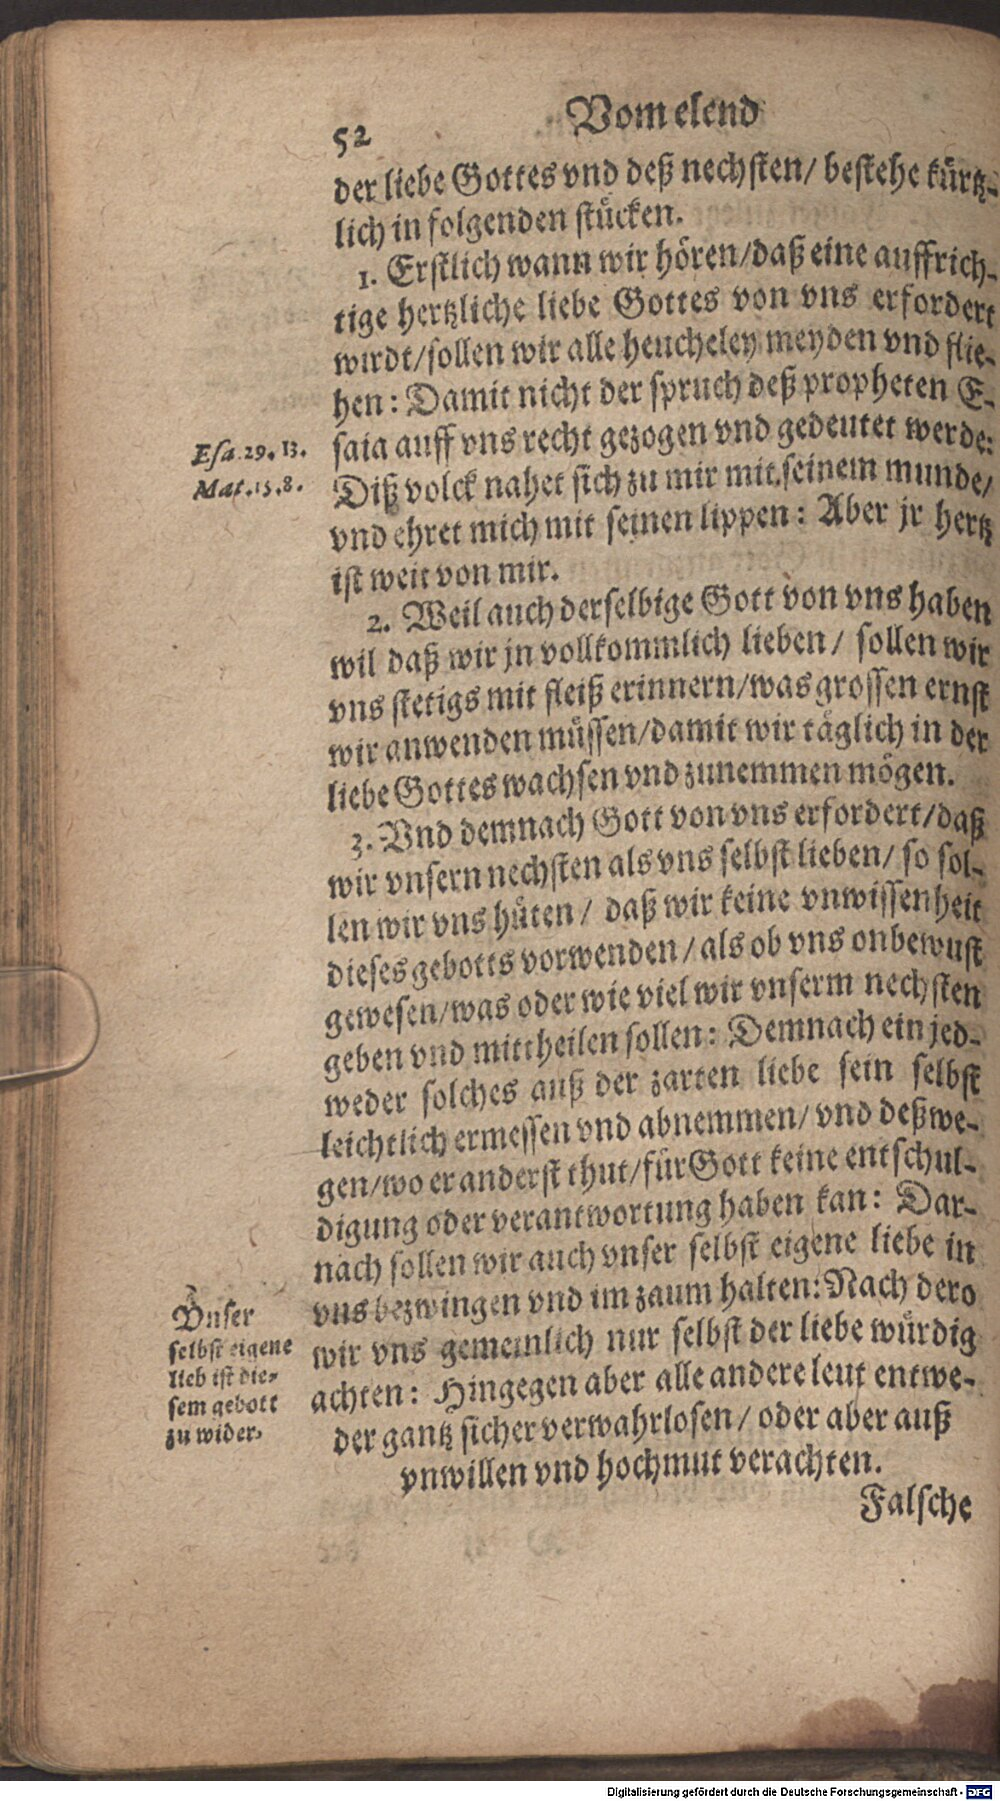 52
Vom elend
der liebe Gottes vnd deß nechsten/ bestehe kürtz-
lich in folgenden stücken.
1. Erstlich wann wir hören/daß eine auffrich-
tige hertzliche liebe Gottes von vns erfordert
wirdt/sollen wir alle heucheley meyden vnd flie-
hen: Damit nicht der spruch deß propheten E-
saia auff vns recht gezogen vnd gedeutet werde:
Esa.29.13.
Mat.15.8.
Diß volck nahet sich zu mir mit seinem munde/
vnd ehret mich mit seinen lippen: Aber jr hertz
ist weit von mir.
2. Weil auch derselbige Gott von vns haben
wil daß wir jn vollkommlich lieben/ sollen wir
vns stetigs mit fleiß erinnern/was grossen ernst
wir anwenden müssen/damit wir täglich in der
liebe Gottes wachsen vnd zunemmen mögen.
3. Vnd demnach Gott von vns erfordert/daß
wir vnsern nechsten als vns selbst lieben/ so sol-
len wir vns hüten/ daß wir keine vnwissenheit
dieses gebotts vorwenden/als ob vns onbewust
gewesen/was oder wie viel wir vnserm nechsten
geben vnd mittheilen sollen: Demnach ein jed-
weder solches auß der zarten liebe sein selbst
leichtlich ermessen vnd abnemmen/ vnd deßwe-
gen/wo er anderst thut/für Gott keine entschul-
digung oder verantwortung haben kan: Dar-
nach sollen wir auch vnser selbst eigene liebe in
vns bezwingen vnd im zaum halten: Nach dero
wir vns gemeinlich nur selbst der liebe würdig
achten: Hingegen aber alle andere leut entwe-
der gantz sicher verwahrlosen/ oder aber auß
vnwillen vnd hochmut verachten.
Vnser
selbst eigene
lieb ist die-
sem gebott
zu wider.
Falsche
Digitalisierung gefördert durch die Deutsche Forschungsgemeinschaft - DFG